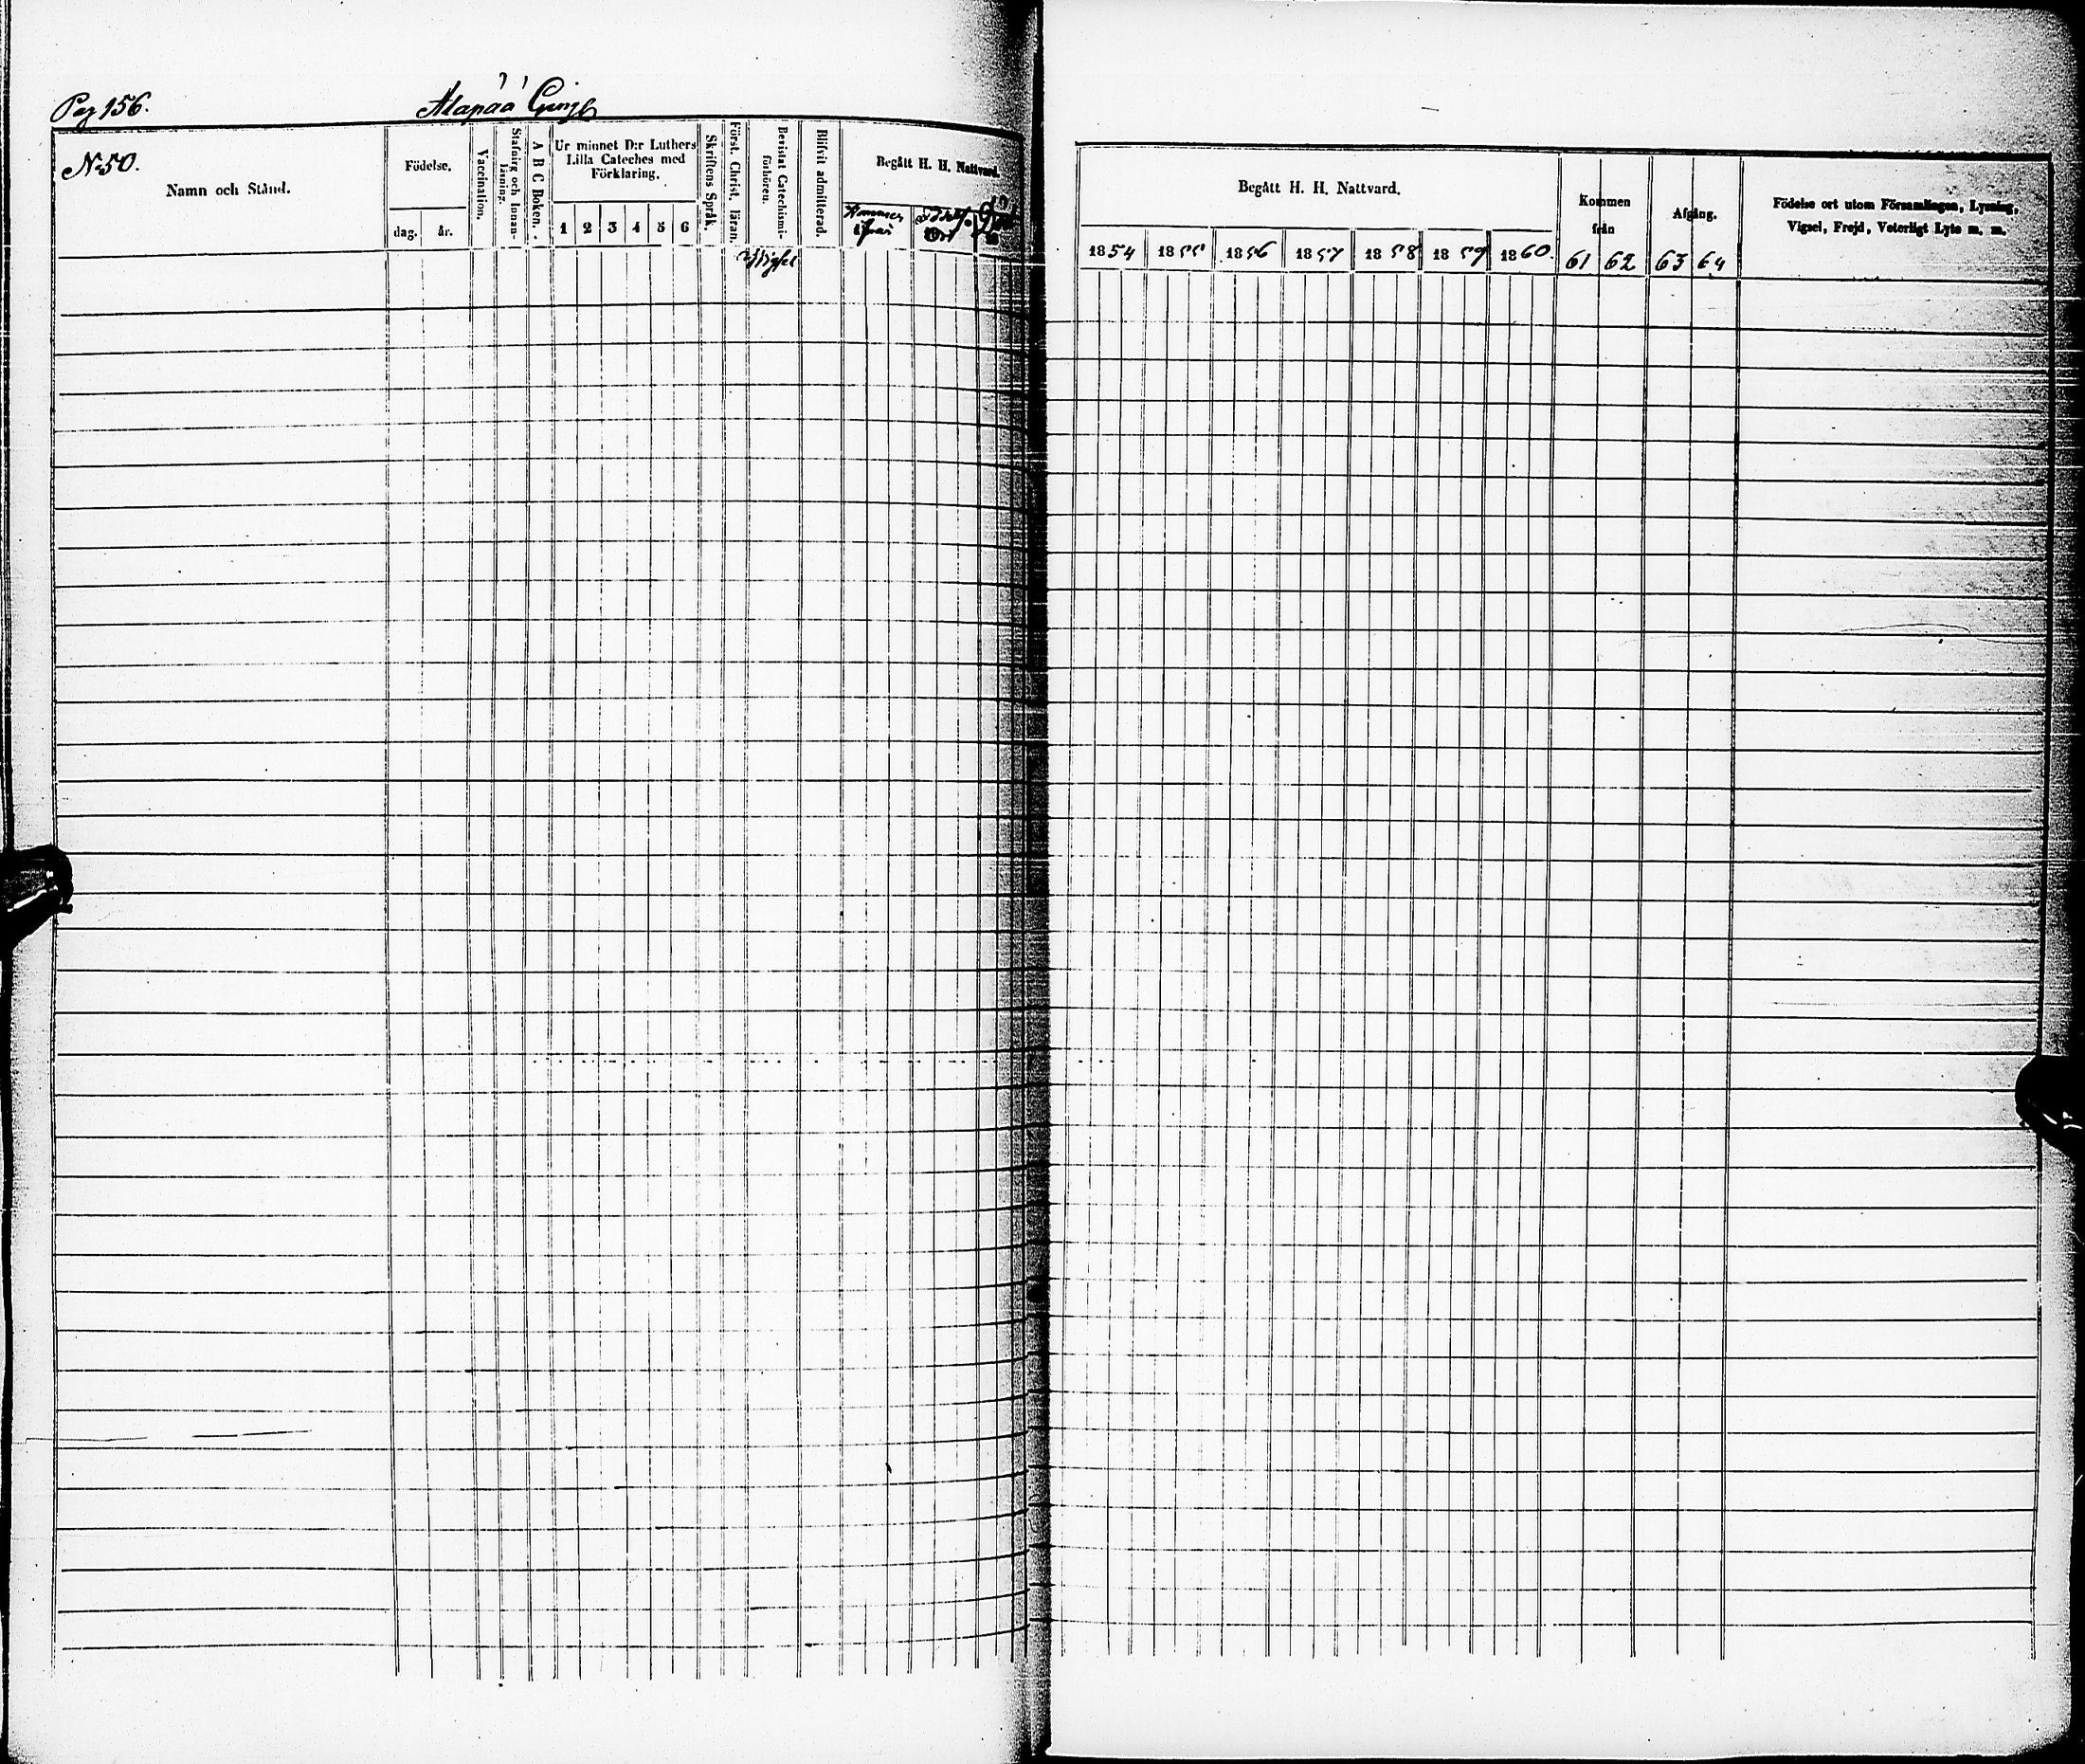 Pag 156.
Alapää
No 50.
Namn och Stånd.
Födelse.
dag.
år.
Vaccination.
Stafning och Innan-
läsning.
A B C Boken.
Ur minnet D:r Luthers
Lilla Cateches med
Förklaring.
1 2 3 4 5 6
Skriftens Språk.
Först. Christ. läran.
Bevistat Catechismi-
förhören.
Vigsel
Blifvit admitterad.
Begått H. H. Nattvard.
Kommen
ifrån
Ort
Begått H. H. Nattvard.
1854 1855 1856 1857 1858 1859 1860.
Kommen
från
61 62
Afgång.
63 64
Födelse ort utom Församlingen, Lysning,
Vigsel, Frejd, Veterligt Lyte m. m.